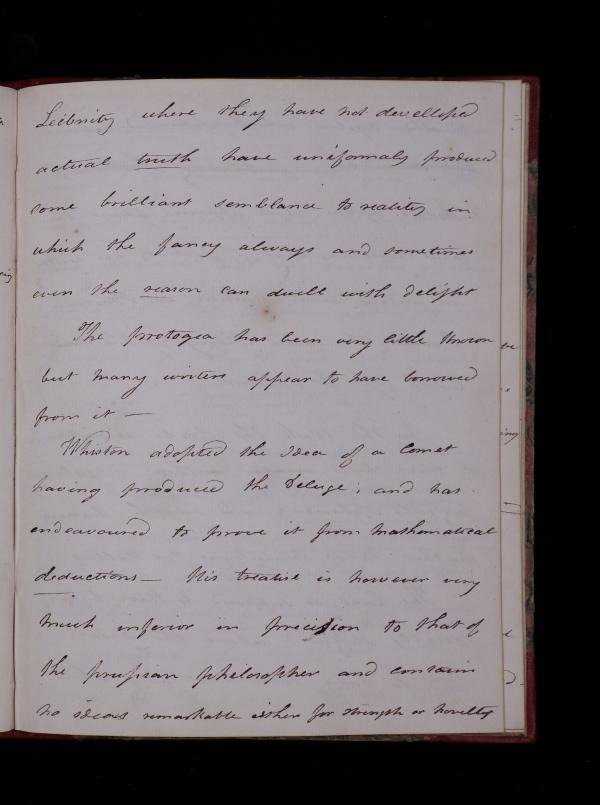 Leibnitz where they have not develloped
actual truth have uniformaly produced
some brilliant semblance to reality in
which the fancy always and sometimes
even the reason can dwell with delight
The protogea has been very little known
but many writers appear to have borrowed
from it —
Whiston adopted the idea of a Comet
having produced the Deluge; and has
endeavoured to prove it from mathematical
deductions — His treatise is however very
much inferior in precision to that of
the prussian philosopher and contain
no ideas remarkable either for strength or novelty